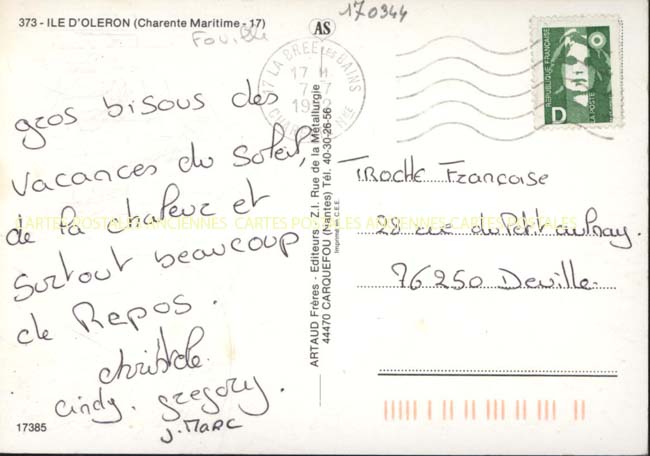 373 - ILE D'OLERON (Charente Maritime - 17)
Fouille
AS
170344
17 LA BREE LES BAINS
17 H
7-7
REPUBLIQUE FRANÇAISE
LA POSTE
D
gros bisous des
vacances du Soleil,
de la chaleur et
Surtout beaucoup
de Repos.
christele
cindy. gregory.
J. MARC
ARTAUD Frères - Editeurs - Z.I. Rue de la Métallurgie
44470 CARQUEFOU (Nantes) Tél. 40-30-26-56
Imprimé en C.E.E.
TROCHE Françoise
28 rue du Petit aulnay.
76250 Deville
CARTES POSTALES ANCIENNES CARTES POSTALES ANCIENNES CARTES POSTALES
17385